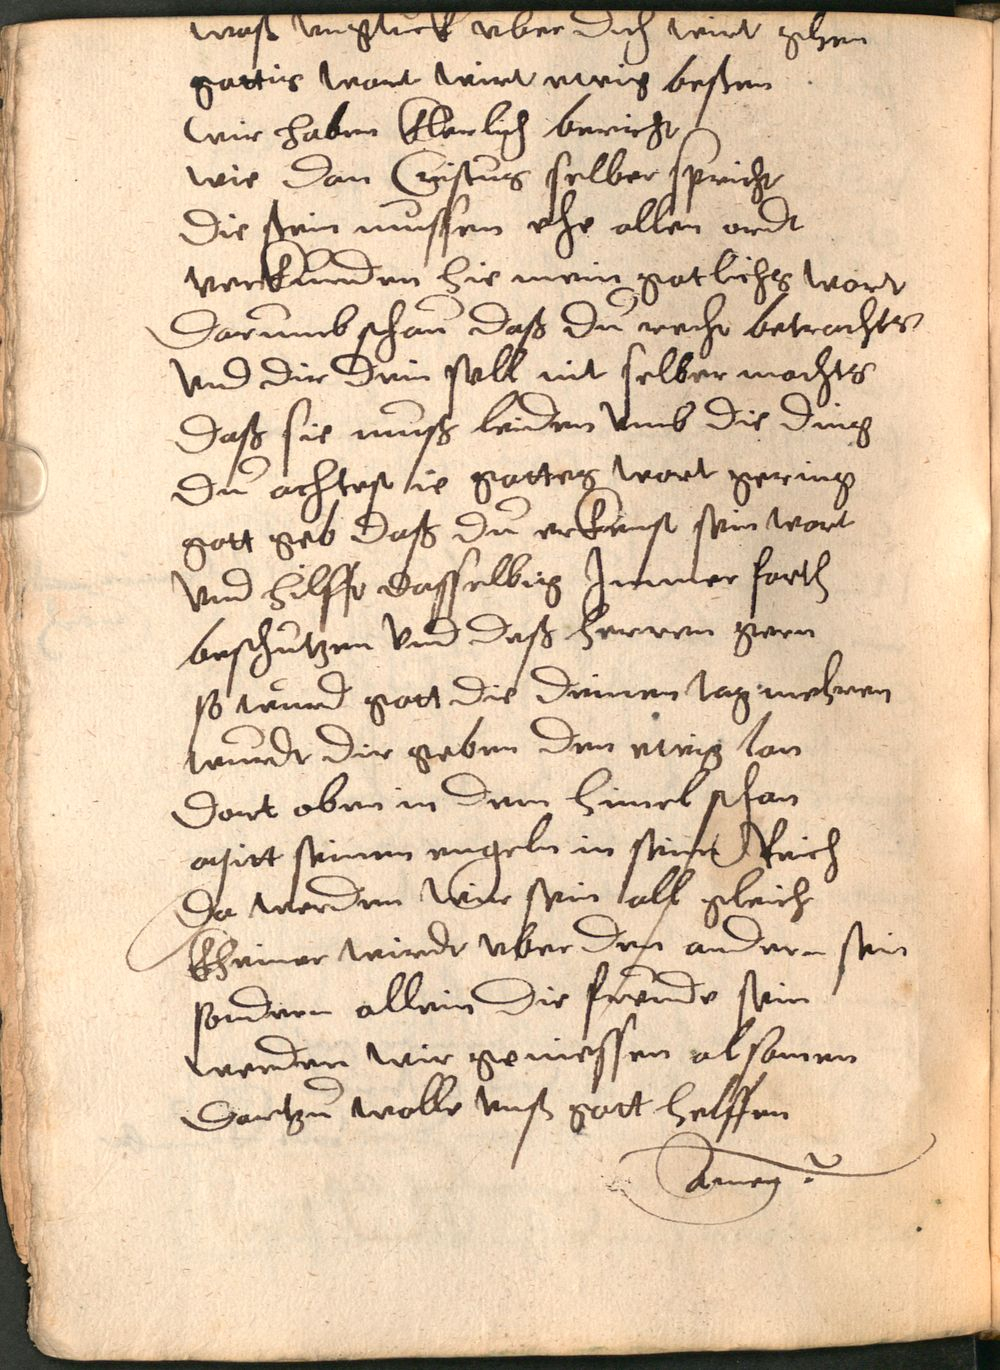 waß unglück uber dich wirt gehen
gottis wort wirt ewig besten
wir haben klerlich bericht
wie dan Cristus selber spricht
die stein mussen ehe allen ordt
verkunden hie mein gotlichs wort
Darumb schau daß du recht betrachts
und dir dein sell nit selber machts
daß sie muß leiden umb die ding
du achtest ie gottes wort gering
gott geb daß du erkenst sein wort
und hilffe dasselbig Immer forth
beschutzen und deß herren gern
so wurd gott die deinen tag mehren
wurdt dir geben den ewig lon
dort oben in dem himel schon
mitt seinen engeln in seim Reich
Da werden wir sein all gleich
kheiner wirdt uber den andern sein
sondern allein die freude sein
werden wir geniessen alsamen
Dartzu wolle unß gott helffen
Amen